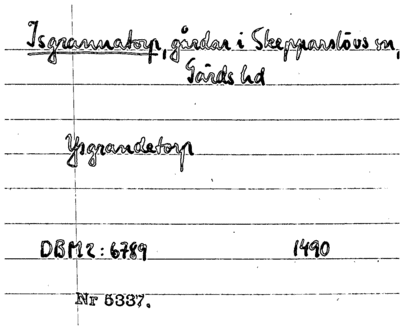 Isgrannatorp, gårdar i Skepparslövs sn,
Gärds hd
Ysgrandetorp
DBM2: 6789 1490
Nr 5337.